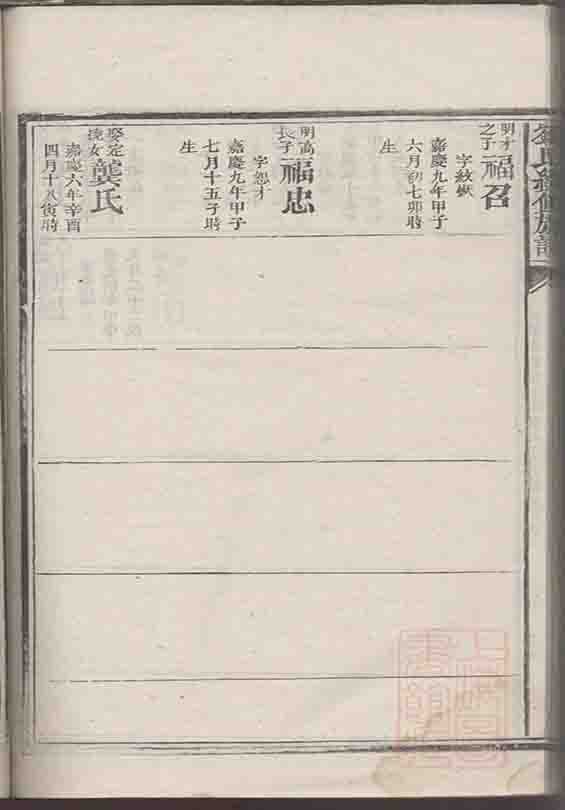 明才之子福召
嘉慶九年甲子
六月初七卯時
生
明高長子福忠
字恕才
嘉慶九年甲子
七月十五子時
生
龔氏
嘉慶六年辛酉
四月十八寅時
氏續修族譜
上海圖書館藏